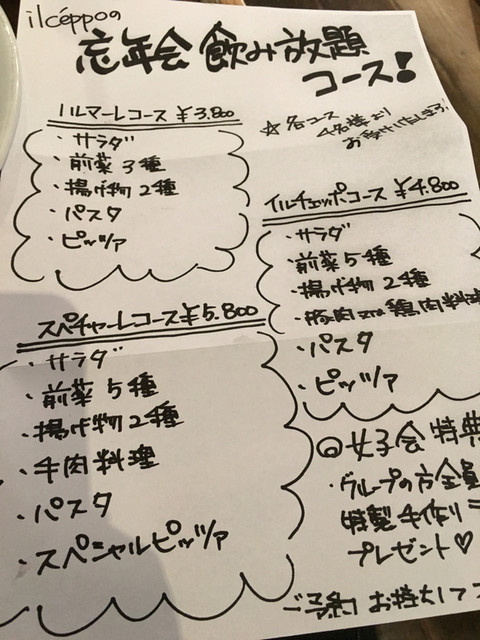 ilceppoの
忘年会 飲み放題
コース!
☆各コース
4名様より
お受けいたします!
ハルマーレコース ¥3.800
・サラダ
・前菜3種
・揚げ物2種
・パスタ
・ピッツァ
イルチェッポコース ¥4.800
・サラダ
・前菜5種
・揚げ物2種
・豚肉 or 鶏肉料理
・パスタ
・ピッツァ
スペチャーレコース ¥5.800
・サラダ
・前菜5種
・揚げ物2種
・牛肉料理
・パスタ
・スペシャルピッツァ
◎女子会特典
・グループの方全員
特製手作り
プレゼント♡
ご予約お待ちして